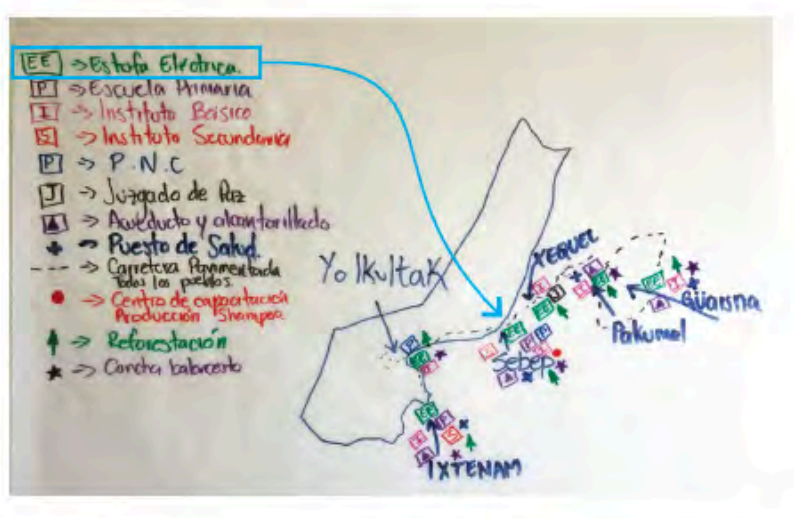 EE → Estufa Eléctrica.
P → Escuela Primaria
I → Instituto Básico
S → Instituto Secundaria
P → P.N.C
J → Juzgado de Paz
▲ → Acueducto y alcantarillado
+ → Puesto de Salud.
---- → Carretera Pavimentada
Todos los pueblos.
● → Centro de capacitación
Producción Shampoo
↑ → Reforestación
★ → Cancha baloncesto
Yolkultak
XEQUEL
Güaisna
Pakumal
Sebep
IXTENAM
EE
EE
EE
EE
EE
J
P